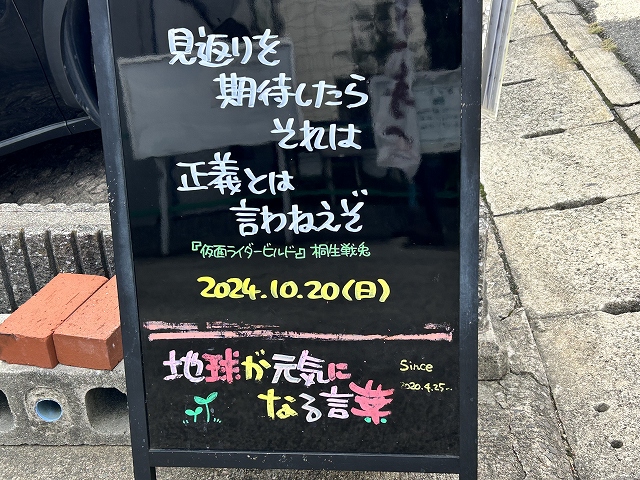 見返りを
期待したら
それは
正義とは
言わねえぞ
『仮面ライダービルド』桐生戦兎
2024.10.20(日)
地球が元気に
なる言葉
Since
2020.4.25~